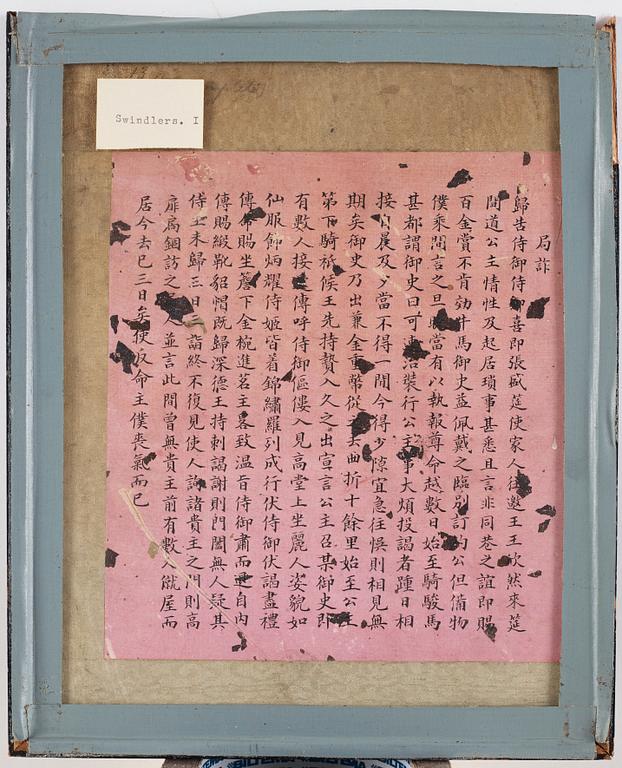 Swindlers. I
局詐
歸告侍御侍御喜即張盛筵使家人往邀王王欣然來筵
間道公主情性及起居瑣事甚悉且言非同巷之誼即賜
百金賞不肯効牛馬御史益佩戴之臨別訂約公但備物
僕乘間言之旦晚當有以報尊命越數日始至騎駿馬
甚都謂御史曰可速治裝行公主事大煩投謁者踵日相
接自晨及夕當不得一間今得少隙宜急往悞則相見無
期矣御史乃出兼金重幣從之去曲折十餘里始至公主
第下騎祇候王先持贄入久之出宣言公主召某御史即
有數人接遞傳呼侍御傴僂入見高堂上坐麗人姿貌如
仙服飾炳耀侍姬皆着錦繡羅列成行伏侍御伏謁盡禮
傳命賜坐簷下金椀進茗主畧致溫旨侍御肅而退自內
傳賜緞靴貂帽既歸深德王持刺謁謝則門闔無人疑其
侍主未歸三日三詣終不復見使人詢諸貴主之門則高
扉扃錮訪之居人並言此間曾無貴主前有數人僦屋而
居今去已三日矣使反命主僕喪氣而已